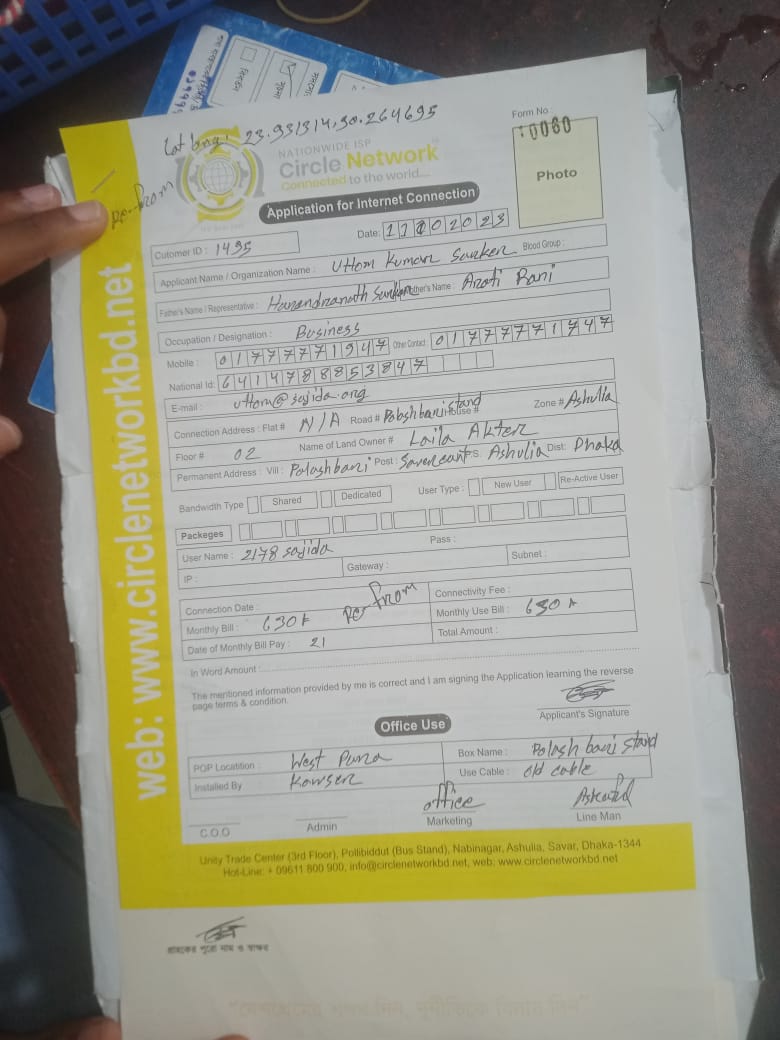 Lat long: 23.931314,90.264695
Re-from
NATIONWIDE ISP
Circle Network
Connected to the world....
Form No :
0060
Photo
Application for Internet Connection
Date: 11 02023
Cutomer ID : 1495
Applicant Name / Organization Name : Uttom Kumar Sarker Blood Group :
Father's Name / Representative : Harandranath Sarker Mother's Name : Arati Rani
Occupation / Designation : Business
Mobile : 01777771947 Other Contact 01777771747
National Id: 6414788853847
E-mail : uttom@sajida.org
Connection Address : Flat # N/A Road # Palashbari stand House # Zone # Ashulia
Floor # 02 Name of Land Owner # Laila Akter
Permanent Address : Vill : Palashbari Post : Savar cant P.S. Ashulia Dist: Dhaka
Bandwidth Type Shared Dedicated User Type : New User Re-Active User
Packeges
User Name : 2178 sajida Pass :
IP : Gateway : Subnet :
Connection Date : Re from Connectivity Fee :
Monthly Bill : 630 Monthly Use Bill : 630
Date of Monthly Bill Pay : 21 Total Amount :
In Word Amount :
The mentioned information provided by me is correct and I am signing the Application learning the reverse
page terms & condition.
Applicant's Signature
Office Use
POP Locatition : West Para Box Name : Polash bari stand
Installed By Kowser Use Cable : old cable
office
C.O.O Admin Marketing Line Man
Unity Trade Center (3rd Floor), Pollibiddut (Bus Stand), Nabinagar, Ashulia, Savar, Dhaka-1344
Hot-Line: + 09611 800 900, info@circlenetworkbd.net, web: www.circlenetworkbd.net
web: www.circlenetworkbd.net
গ্রাহকের পুরো নাম ও স্বাক্ষর